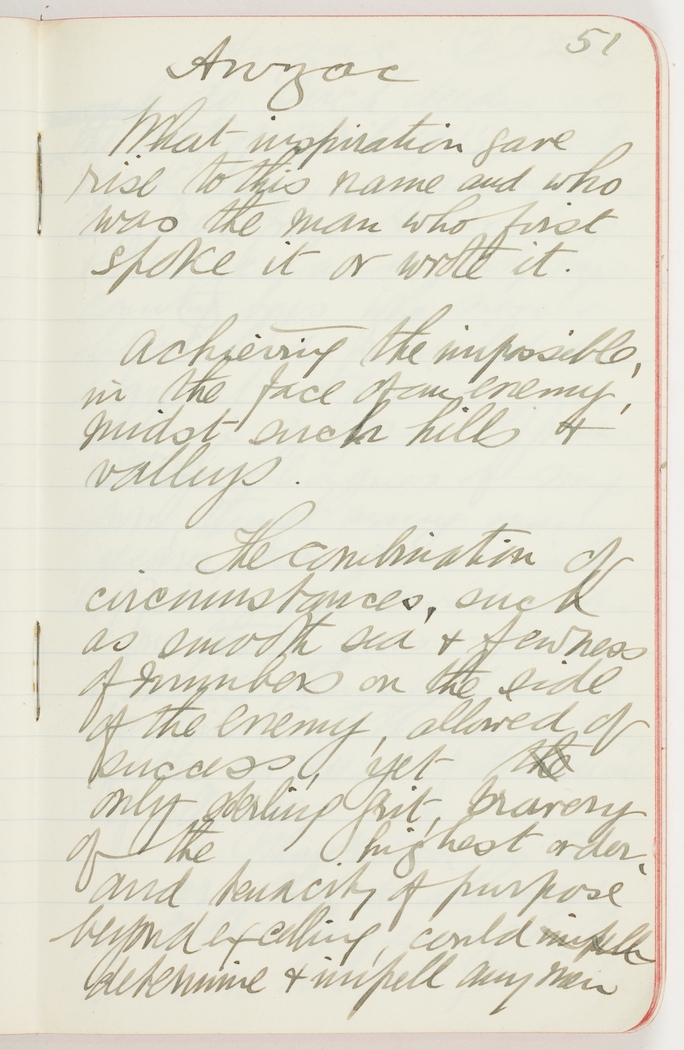 51
Anzac
What inspiration gave
rise to this name and who
was the man who first
spoke it or wrote it.
Achieving the impossible,
in the face of an enemy,
midst such hills &
valleys.
The combination of
circumstances, such
as smooth sea & fewness
of numbers on the side
of the enemy, allowed of
success, yet the
only sterling grit, bravery
of the highest order,
and tenacity of purpose
beyond excelling, could impell
determine & impell any men